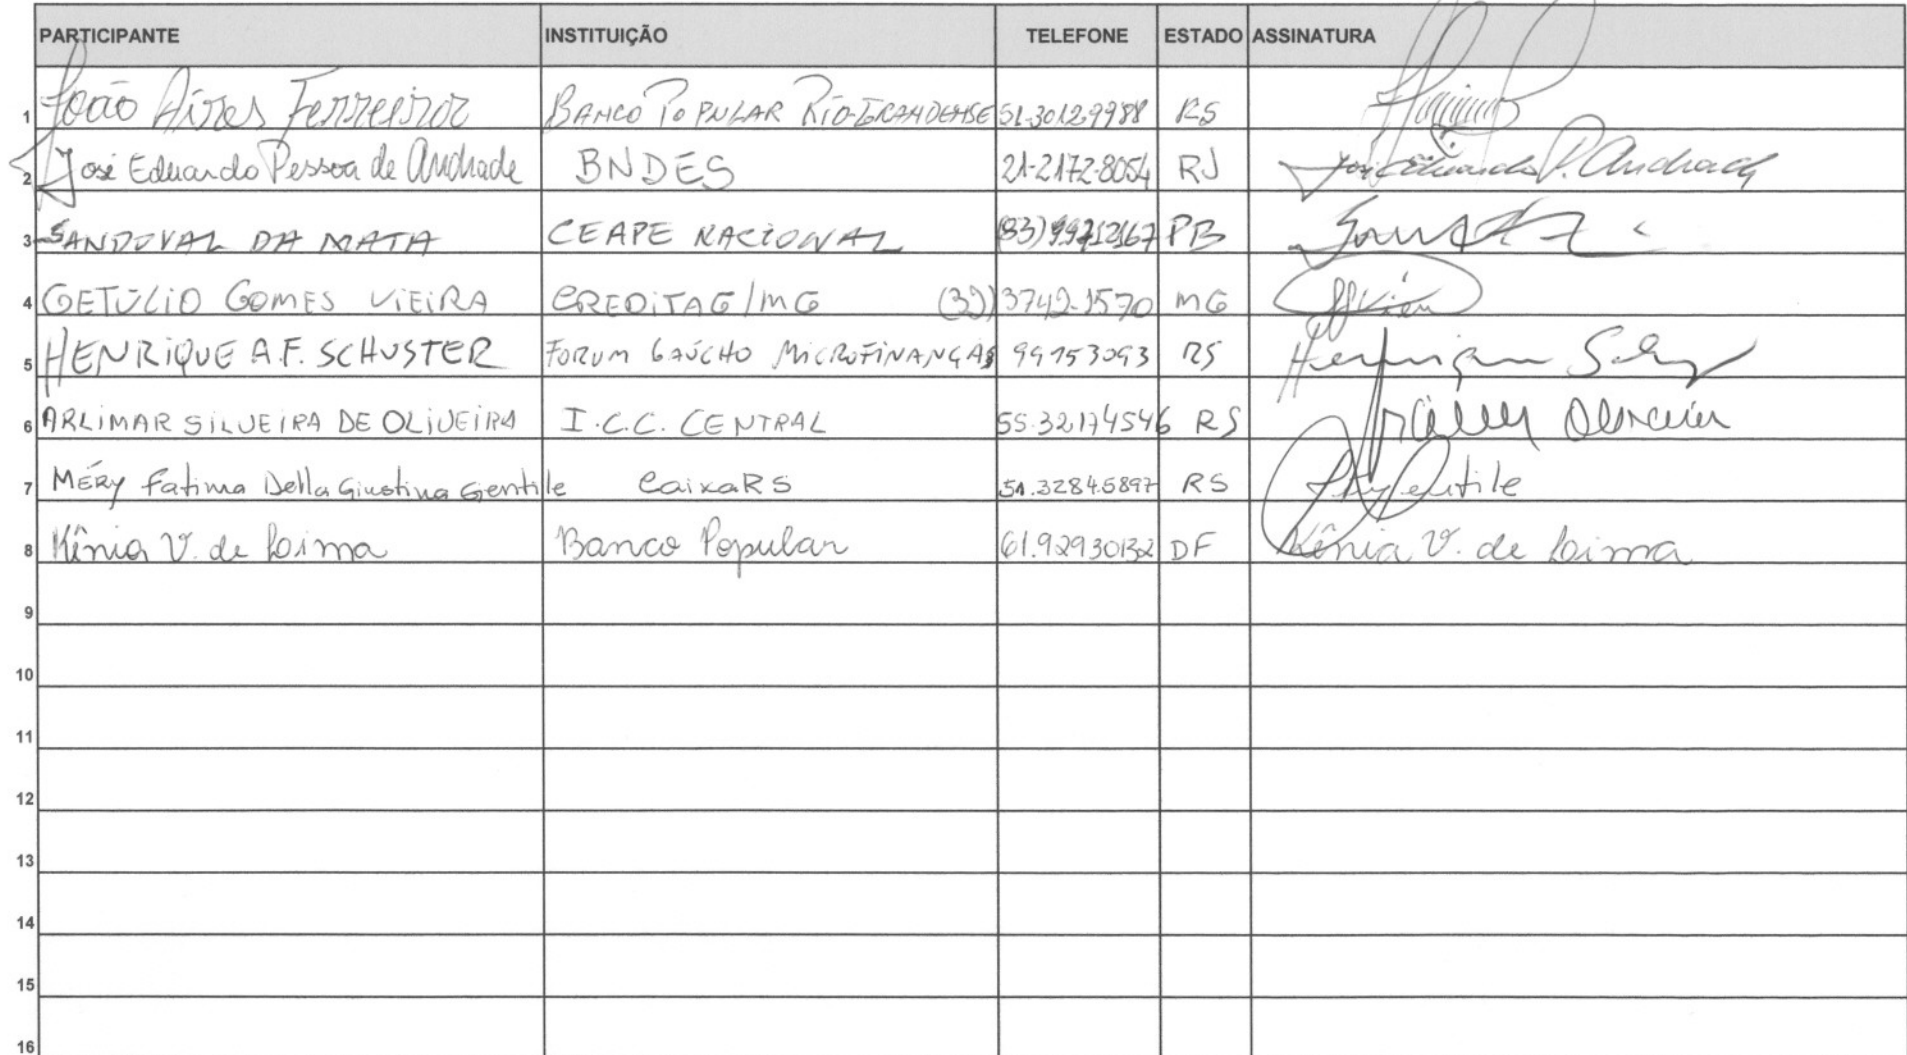 PARTICIPANTE INSTITUIÇÃO TELEFONE ESTADO ASSINATURA
1 João Aires Ferreira BANCO POPULAR RIO-GRANDENSE 51-30129988 RS
2 José Eduardo Pessoa de Andrade BNDES 21-2172-8054 RJ José Eduardo P. Andrade
3 SANDOVAL DA MATA CEAPE NACIONAL (83) 99712167 PB
4 GETÚLIO GOMES VIEIRA CREDITAG/MG (32) 3742-1570 MG
5 HENRIQUE A.F. SCHUSTER FORUM GAÚCHO MICROFINANÇAS 99153093 RS Henrique
6 ARLIMAR SILVEIRA DE OLIVEIRA I.C.C. CENTRAL 55.32174546 RS
7 MÉRY Fatima Della Giustina Gentile CaixaRS 51.32845897 RS
8 Kênia V. de Lima Banco Popular 61.92930132 DF Kênia V. de Lima
9
10
11
12
13
14
15
16